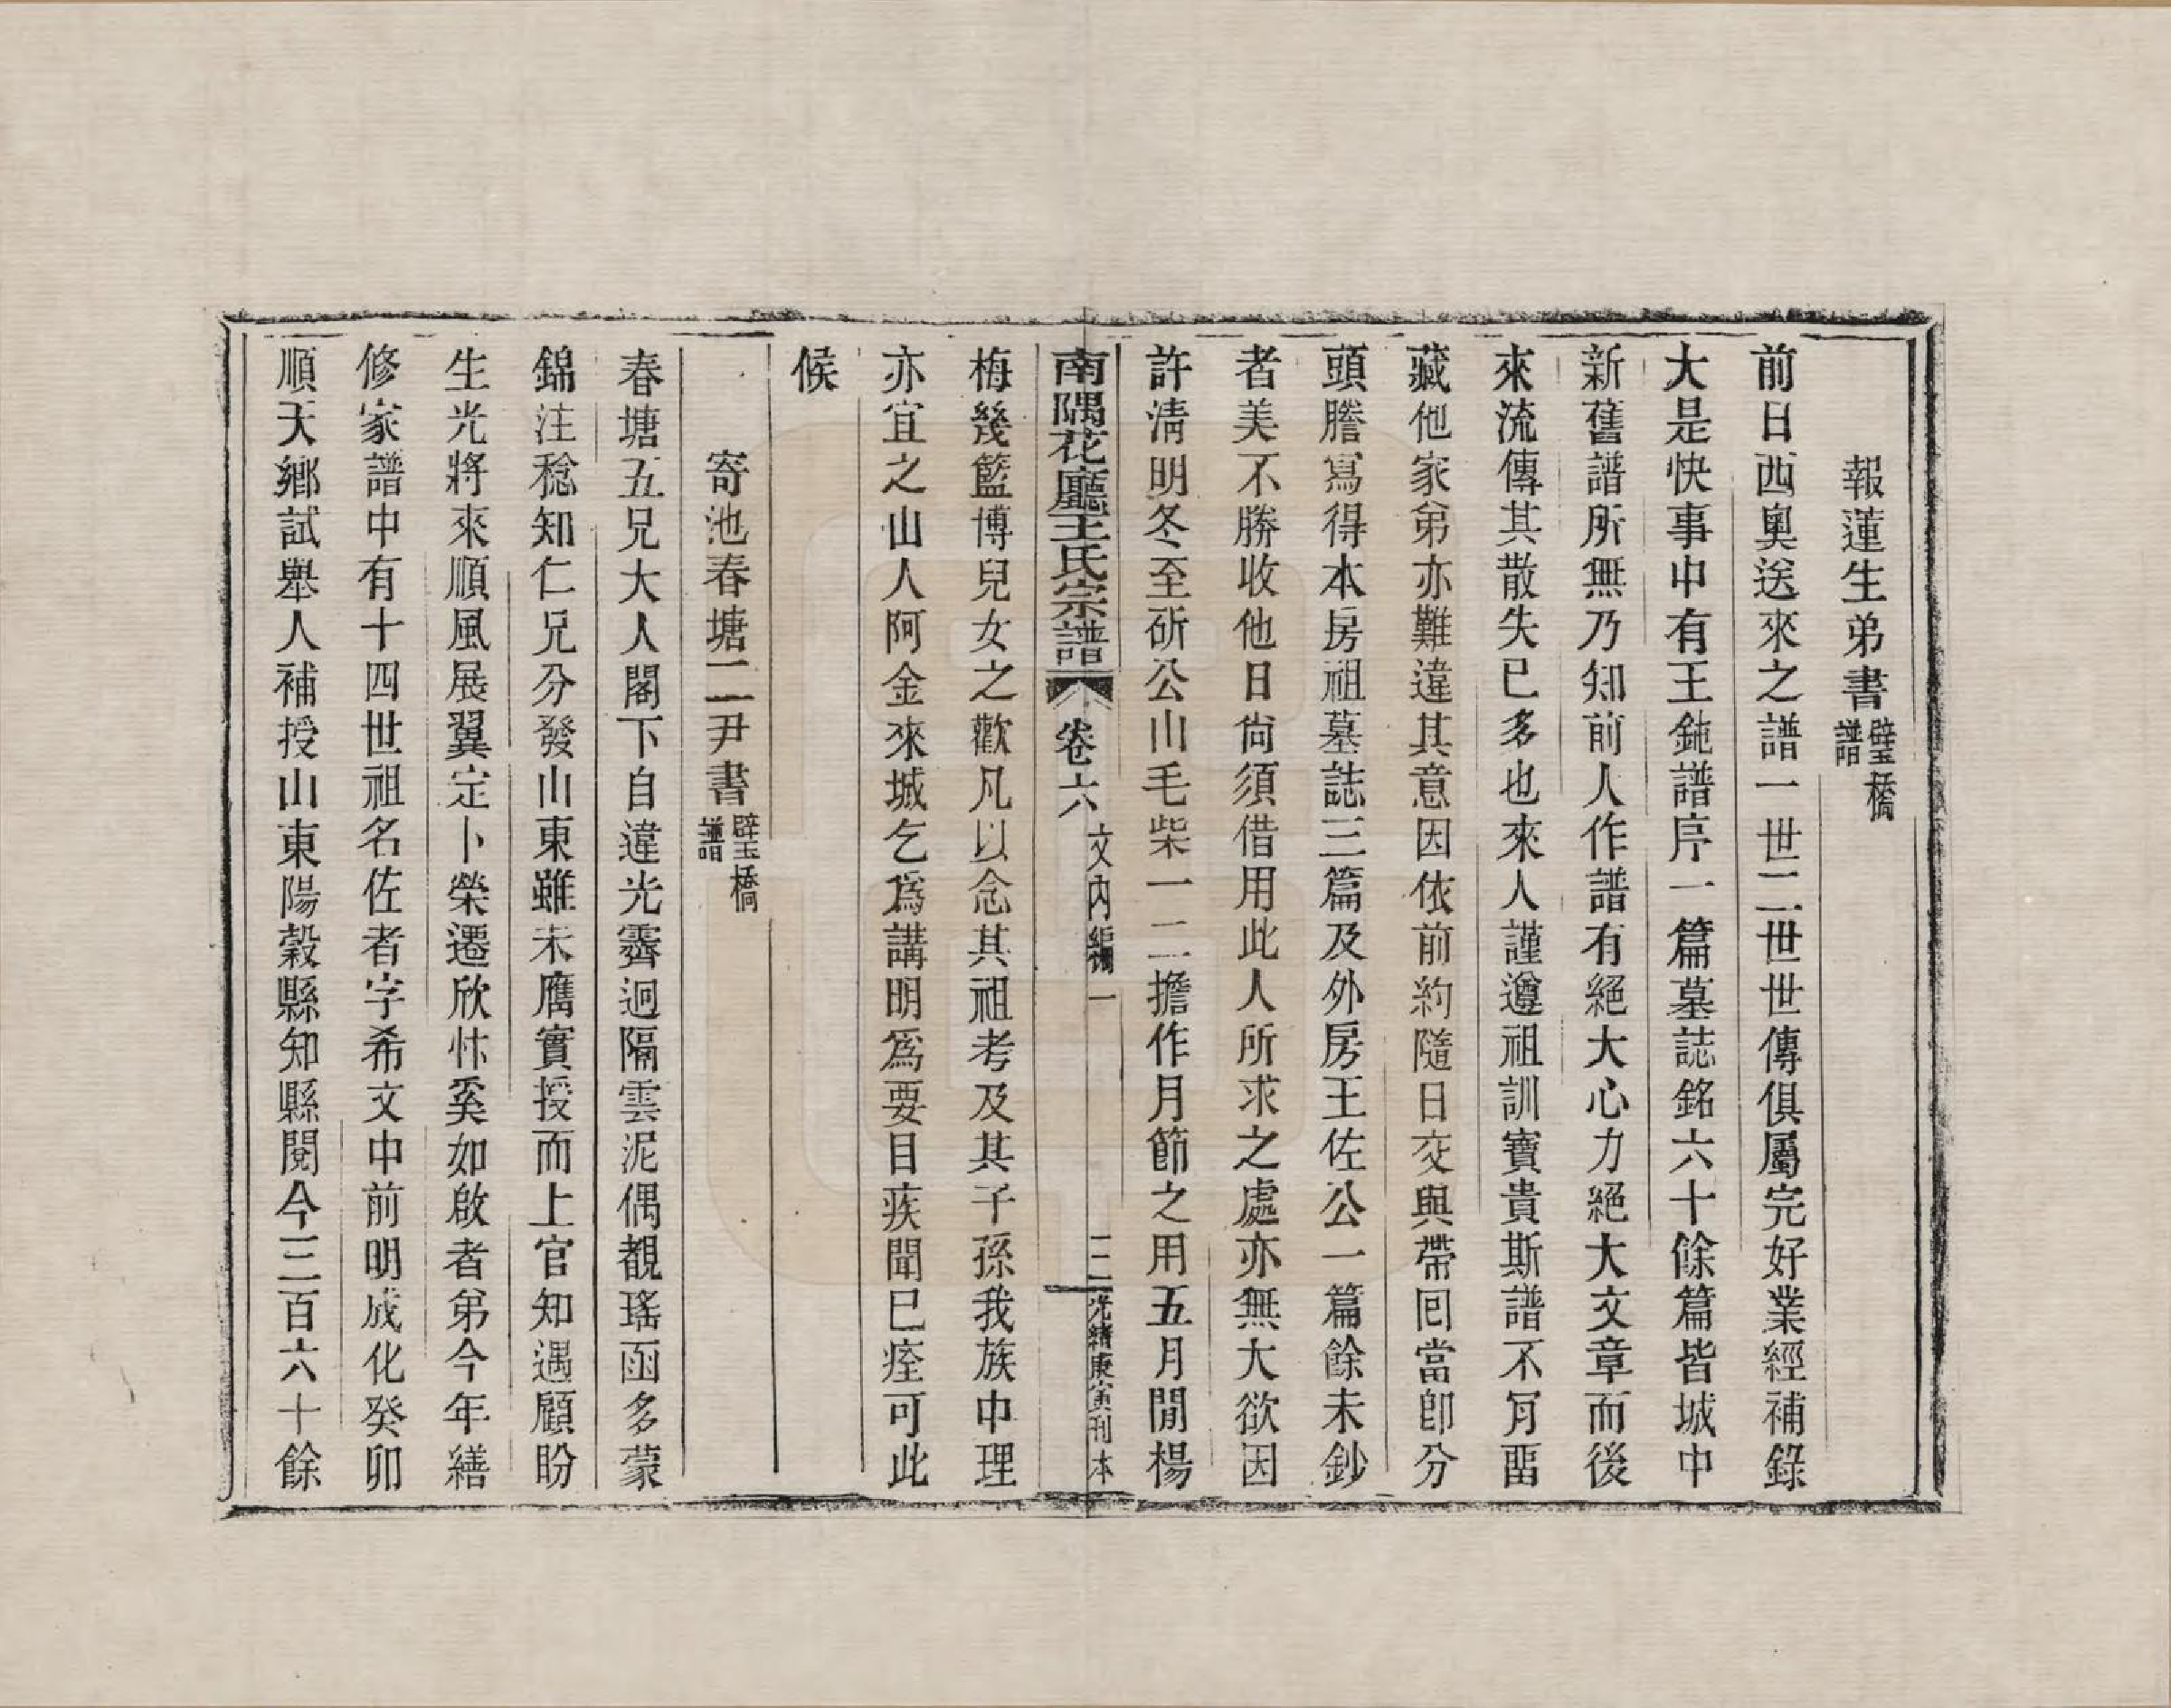 報蓮生弟書璧玉橋譜
前日西奧送來之譜一世二世世傳俱屬完好業經補錄
大是快事中有王鉇譜序一篇墓誌銘六十餘篇皆城中
新舊譜所無乃知前人作譜有絕大心力絕大文章而後
來流傳其散失已多也來人謹遵祖訓寶貴斯譜不肎畱
藏他家弟亦難違其意因依前約隨日交與帶囘當卽分
頭謄寫得本房祖墓誌三篇及外房王佐公一篇餘未鈔
者美不勝收他日尙須借用此人所求之處亦無大欲因
許淸明冬至斫公山毛柴一二擔作月節之用五月閒楊
南隅花廳王氏宗譜 卷六 文內編 一 二 光緖庚寅刊本
梅幾籃博兒女之歡凡以念其祖考及其子孫我族中理
亦宜之山人阿金來城乞爲講明爲要目疾聞已痊可此
候
寄池春塘二尹書璧玉橋譜
春塘五兄大人閣下自違光霽迥隔雲泥偶覩瑤函多蒙
錦注稔知仁兄分發山東雖未膺實授而上官知遇顧盼
生光將來順風展翼定卜榮遷欣忭奚如啟者弟今年繕
修家譜中有十四世祖名佐者字希文中前明成化癸卯
順天鄉試舉人補授山東陽穀縣知縣閱今三百六十餘